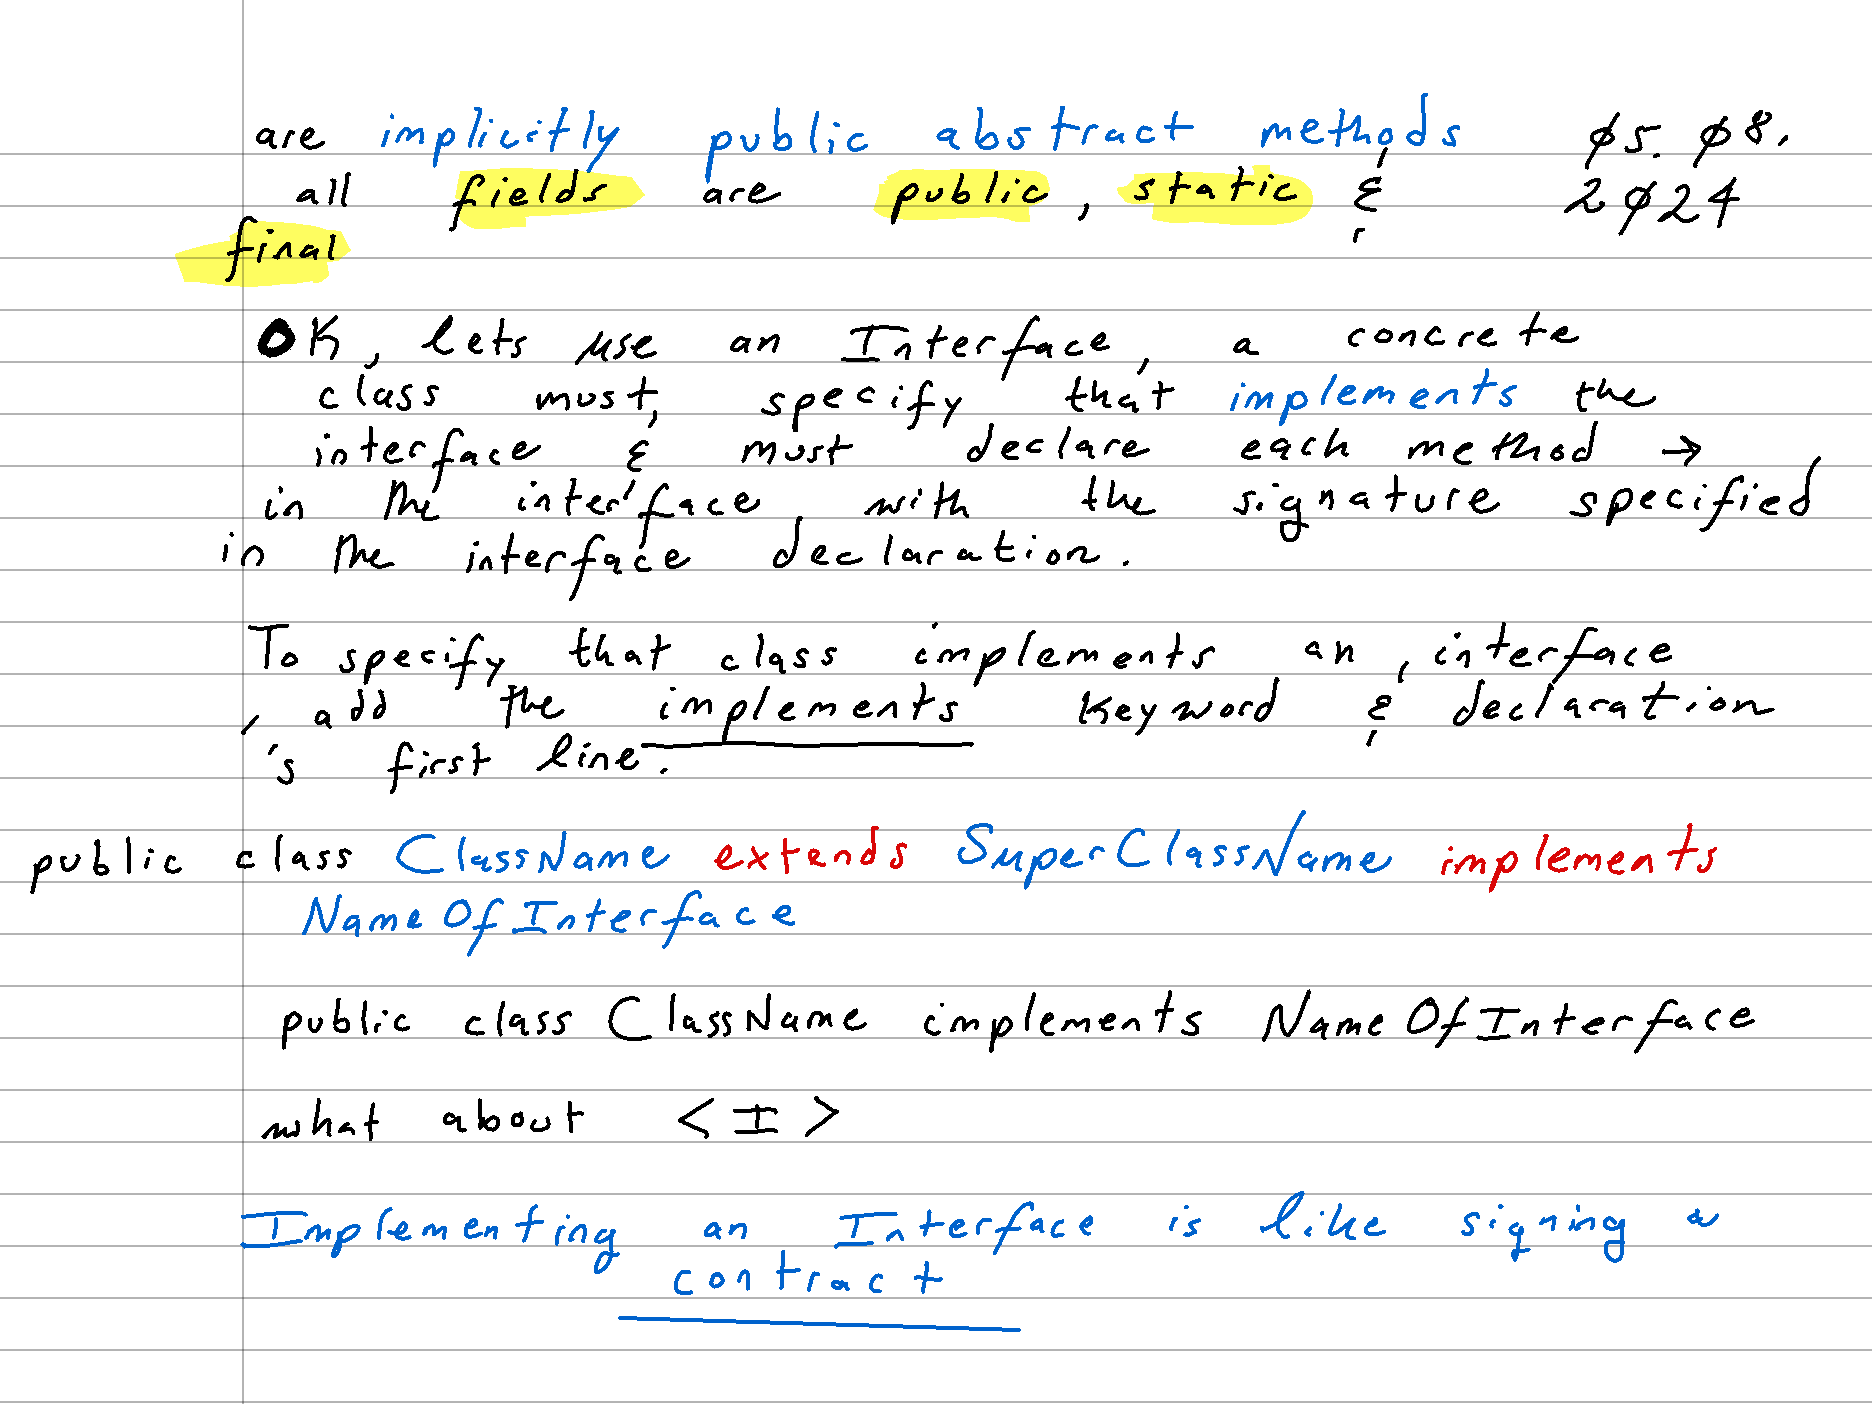 are implicitly public abstract methods ø5. ø8.
all fields are public, static & 2ø24
final
OK, lets use an Interface, a concrete
class must, specify that implements the
interface & must declare each method →
in the interface with the signature specified
in the interface declaration.
To specify that class implements an interface
, add the implements keyword & declaration
's first line.
public class ClassName extends SuperClassName implements
NameOfInterface
public class ClassName implements NameOfInterface
what about <I>
Implementing an Interface is like signing a
contract